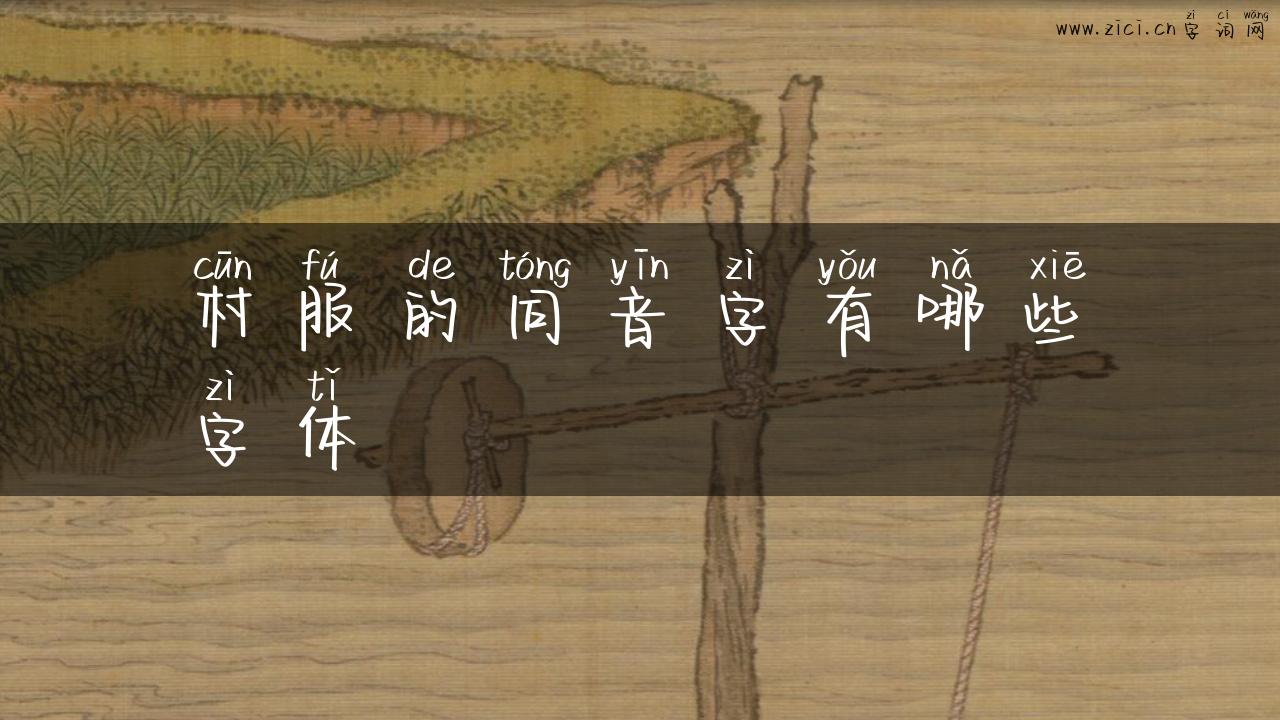 zì cí wǎng
www.zici.cn字词网
cūn fú de tóng yīn zì yǒu nǎ xiē
村服的同音字有哪些
zì tǐ
字体